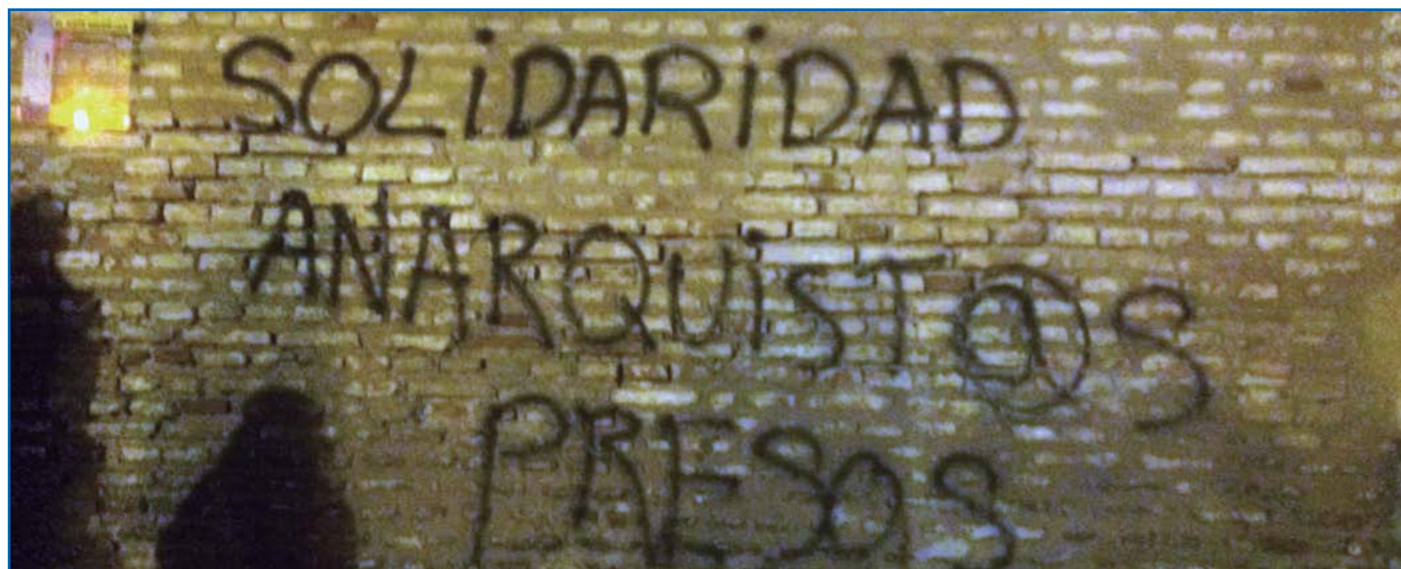 SOLiDARiDAD
ANARQUiST@S
PRESOS